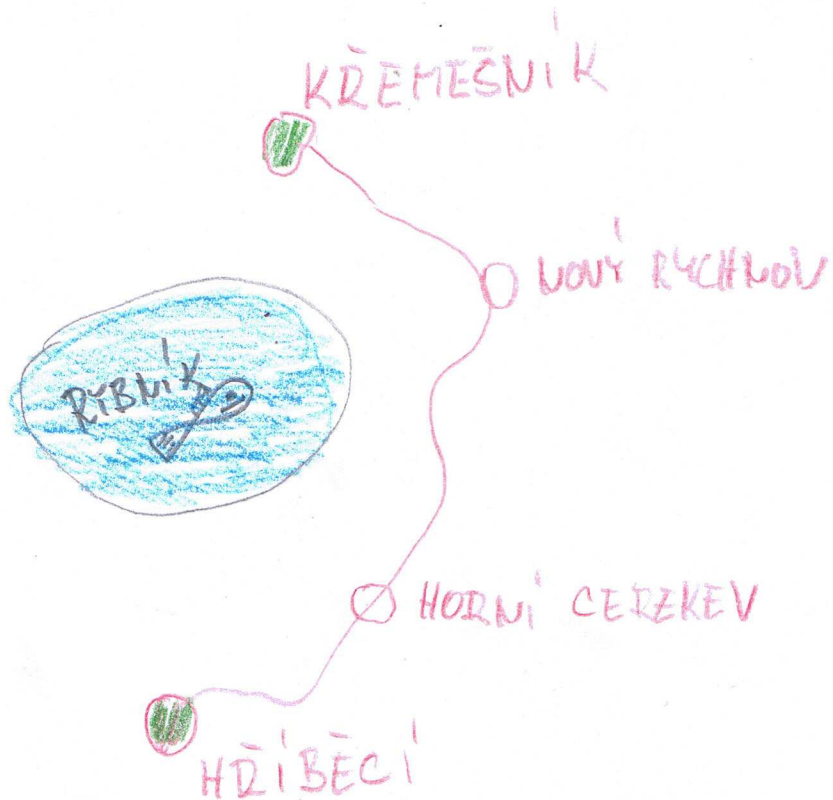 KŘEMEŠNÍK
NOVÝ RYCHNOV
RYBNÍK
HORNÍ CEREKEV
HŘÍBĚCÍ